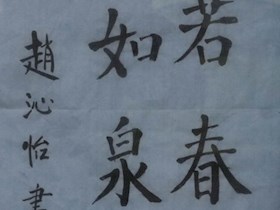 若春
如泉
趙沁怡書